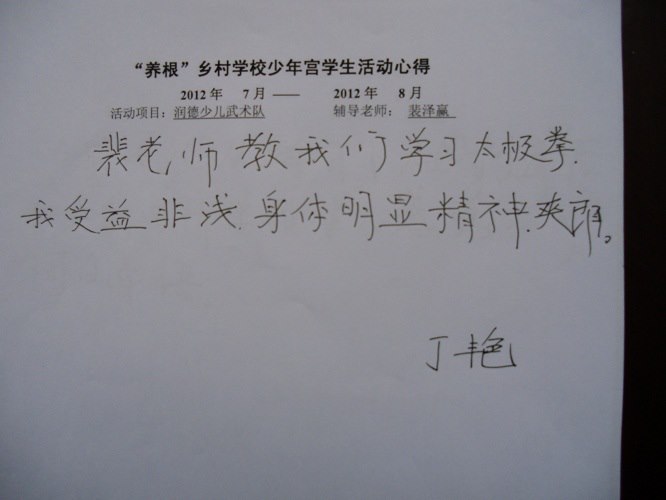 “养根”乡村学校少年宫学生活动心得
2012年 7月—— 2012年 8月
活动项目：润德少儿武术队 辅导老师： 裴泽赢
裴老师教我们学习太极拳.
我受益非浅.身体明显精神.爽朗。
丁艳